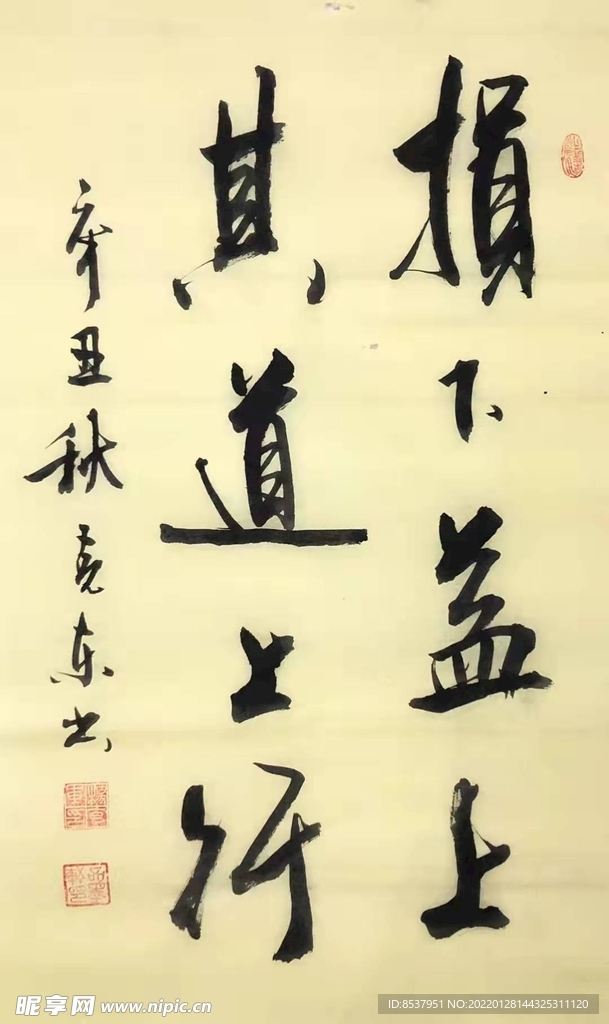 损下益上
其道上行
辛丑秋亮东书
昵享网 www.nipic.cn
ID:8537951 NO:20220128144325311120